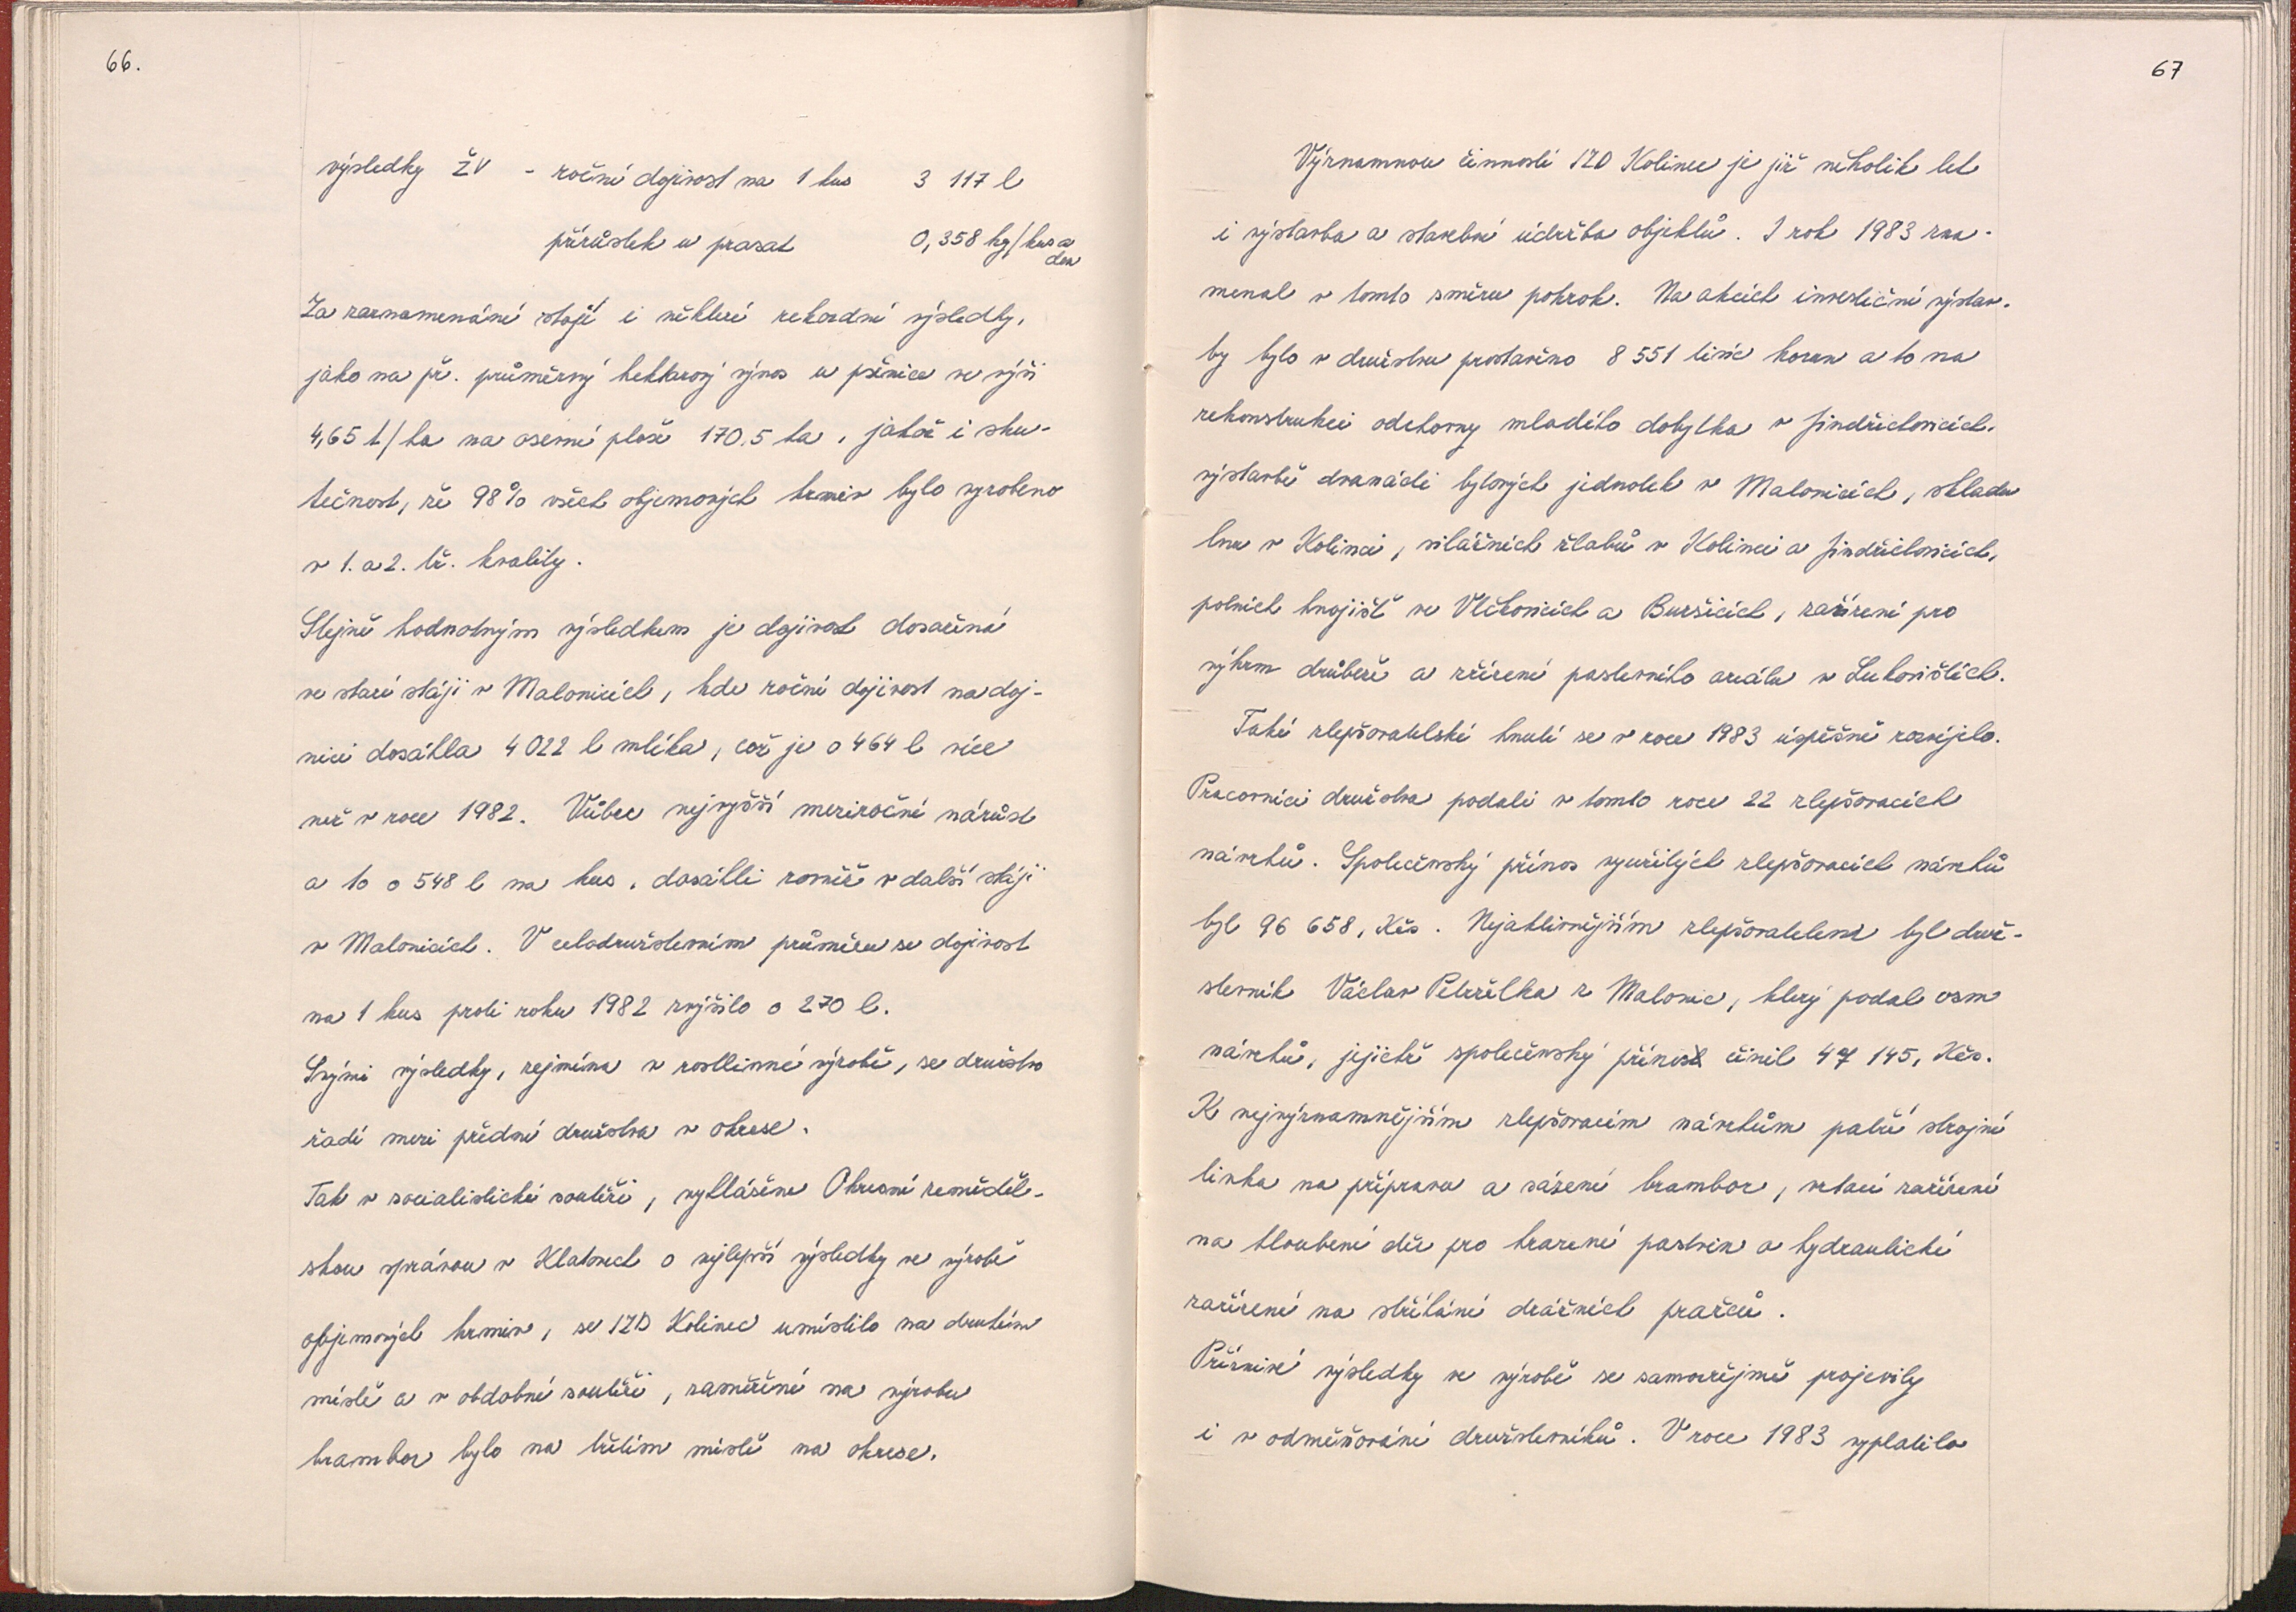 66.
výsledky ŽV - roční dojivost na 1 kus 3 117 l
přírůstek u prasat 0,358 kg/kus a
den
Za zaznamenání stojí i některé rekordní výsledky,
jako na př. průměrný hektarový výnos u pšenice ve výši
4,65 t/ha na osevní ploše 170,5 ha, jakož i sku-
tečnost, že 98% všech objemových krmiv bylo vyrobeno
v 1. a 2. tř. kvality.
Stejně hodnotným výsledkem je dojivost dosažená
ve staré stáji v Malonicích, kde roční dojivost na doj-
nici dosáhla 4 022 l mléka, což je o 464 l více
než v roce 1982. Vůbec nejvyšší meziroční nárůst
a to o 548 l na kus, dosáhli rovněž v další stáji
v Malonicích. V celodružstevním průměru se dojivost
na 1 kus proti roku 1982 zvýšila o 270 l.
Svými výsledky, zejména v rostlinné výrobě, se družstvo
řadí mezi přední družstva v okrese.
Tak v socialistické soutěži, vyhlášené Okresní zeměděl-
skou správou v Klatovech o nejlepší výsledky ve výrobě
objemových krmiv, se JZD Kolinec umístilo na druhém
místě a v obdobné soutěži, zaměřené na výrobu
brambor bylo na třetím místě na okrese.
67
Významnou činností JZD Kolinec je již několik let
i výstavba a stavební údržba objektů. I rok 1983 zna-
menal v tomto směru pokrok. Na akcích investiční výstav-
by bylo v družstvu prostavěno 8 551 tisíc korun a to na
rekonstrukci odchovny mladého dobytka v Jindřichovicích,
výstavbě dvanácti bytových jednotek v Malonicích, skladu
lnu v Kolinci, silážních žlabů v Kolinci a Jindřichovicích,
polních hnojišť ve Vlčkovicích a Buršicích, zařízení pro
výkrm drůbeže a zřízení pastevního areálu v Lukovištích.
Také zlepšovatelské hnutí se v roce 1983 úspěšně rozvíjelo.
Pracovníci družstva podali v tomto roce 22 zlepšovacích
návrhů. Společenský přínos využitých zlepšovacích návrhů
byl 96 658, Kčs. Nejaktivnějším zlepšovatelem byl druž-
stevník Václav Petrželka z Malonic, který podal osm
návrhů, jejichž společenský přínos činil 47 145, Kčs.
K nejvýznamnějším zlepšovacím návrhům patří strojní
linka na přípravu a sázení brambor, vrtací zařízení
na hloubení děr pro hrazení pastvin a hydraulické
zařízení na stříhání drážních pražců.
Příznivé výsledky ve výrobě se samozřejmě projevily
i v odměňování družstevníků. V roce 1983 vyplatilo